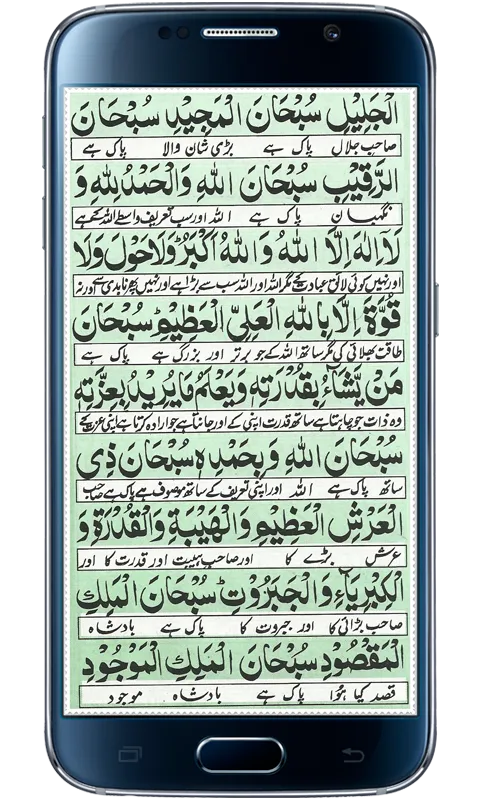 الْجَلِيْلِ سُبْحَانَ الْمَجِيْدِ سُبْحَانَ
صاحب جلال پاک ہے بڑی شان والا پاک ہے
الرَّقِيْبِ سُبْحَانَ اللهِ وَالْحَمْدُ لِلّٰهِ وَ
نگہبان پاک ہے اللہ اور سب تعریف واسطے اللہ کے ہے
لَآ اِلٰهَ اِلَّا اللهُ وَ اللهُ اَكْبَرُ وَلَا حَوْلَ وَلَا
اور نہیں کوئی لائق عبادت کے مگر اللہ اور اللہ سب سے بڑا ہے اور نہیں پھرنا بدی سے اور نہ
قُوَّةَ اِلَّا بِاللهِ الْعَلِيِّ الْعَظِيْمِ سُبْحَانَ
طاقت بھلائی کی مگر ساتھ اللہ کے جو برتر اور بزرگ ہے پاک ہے
مَنْ يَّشَآءُ بِقُدْرَتِهٖ وَيَعْلَمُ مَا يُرِيْدُ بِعِزَّتِهٖ
وہ ذات جو چاہتا ہے ساتھ قدرت اپنی کے اور جانتا ہے جو ارادہ کرتا ہے اپنی عزت کے
سُبْحَانَ اللهِ وَ بِحَمْدِهٖ سُبْحَانَ ذِي
ساتھ پاک ہے اللہ اور اپنی تعریف کے ساتھ موصوف ہے پاک ہے صاحب
الْعَرْشِ الْعَظِيْمِ وَالْهَيْبَةِ وَالْقُدْرَةِ وَ
عرش بڑے کا اور صاحب ہیبت اور قدرت کا اور
الْكِبْرِيَآءِ وَالْجَبَرُوْتِ سُبْحَانَ الْمَلِكِ
صاحب بڑائی کا اور جبروت کا پاک ہے بادشاہ
الْمَقْصُوْدِ سُبْحَانَ الْمَلِكِ الْمَوْجُوْدِ
قصد کیا ہوا پاک ہے بادشاہ موجود